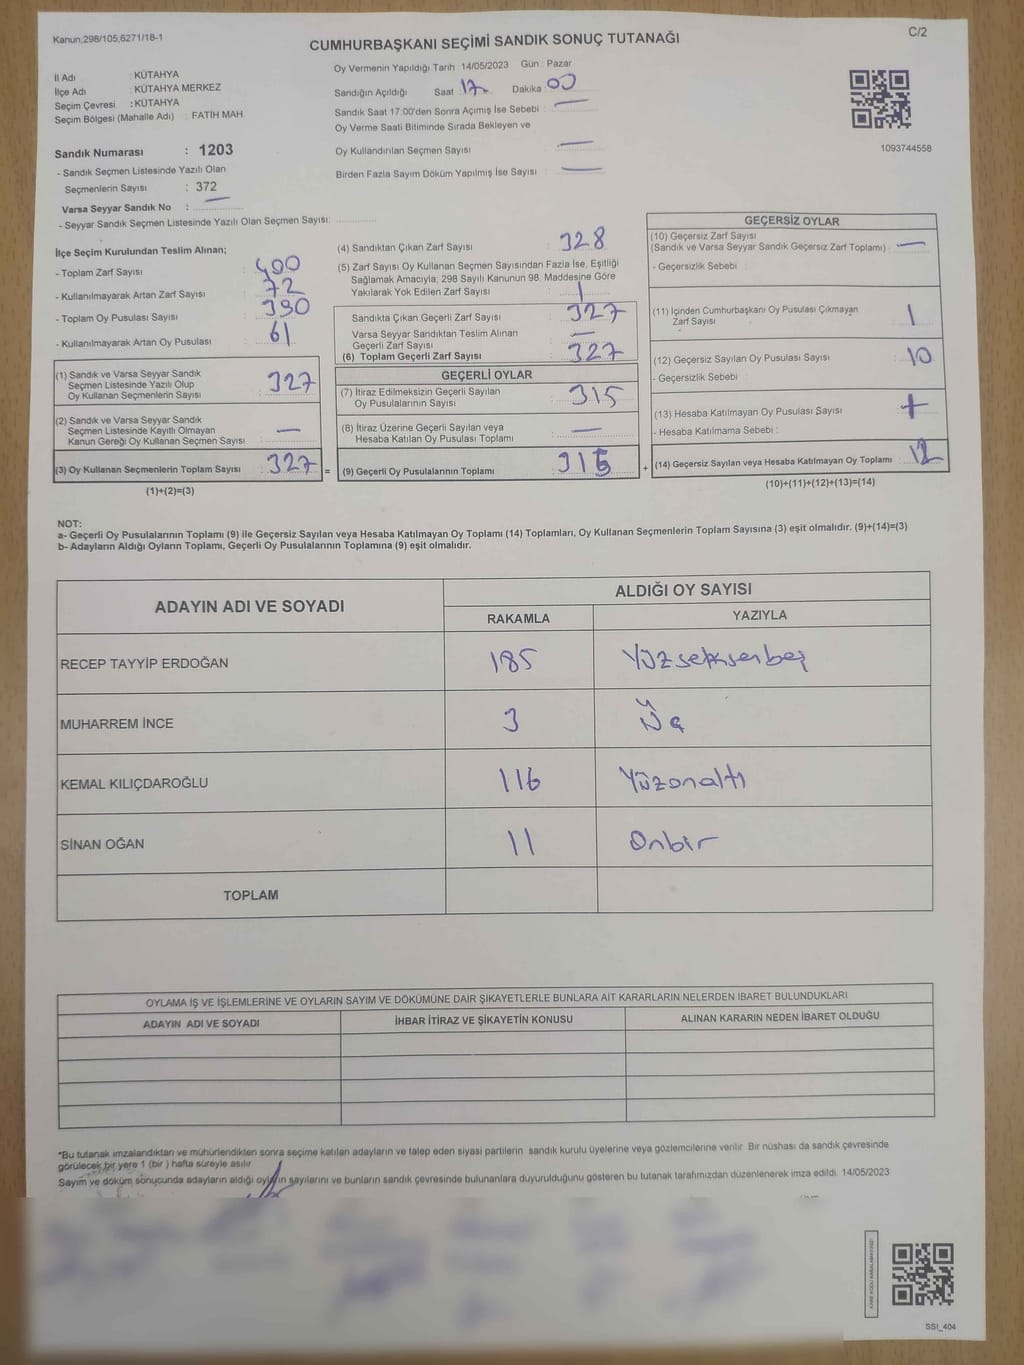 Kanun:298/105;6271/18-1
C/2
CUMHURBAŞKANI SEÇİMİ SANDIK SONUÇ TUTANAĞI
İl Adı : KÜTAHYA
İlçe Adı : KÜTAHYA MERKEZ
Seçim Çevresi : KÜTAHYA
Seçim Bölgesi (Mahalle Adı) : FATİH MAH
Oy Vermenin Yapıldığı Tarih : 14/05/2023 Gün : Pazar
Sandığın Açıldığı Saat : 17 Dakika : 00
Sandık Saat 17:00'den Sonra Açımış İse Sebebi : —
Oy Verme Saati Bitiminde Sırada Bekleyen ve
Oy Kullandırılan Seçmen Sayısı : —
Birden Fazla Sayım Döküm Yapılmış İse Sayısı : —
1093744558
Sandık Numarası : 1203
- Sandık Seçmen Listesinde Yazılı Olan
Seçmenlerin Sayısı : 372
Varsa Seyyar Sandık No : —
- Seyyar Sandık Seçmen Listesinde Yazılı Olan Seçmen Sayısı:
İlçe Seçim Kurulundan Teslim Alınan;
- Toplam Zarf Sayısı : 400
- Kullanılmayarak Artan Zarf Sayısı : 72
- Toplam Oy Pusulası Sayısı : 390
- Kullanılmayarak Artan Oy Pusulası : 61
(1) Sandık ve Varsa Seyyar Sandık
Seçmen Listesinde Yazılı Olup
Oy Kullanan Seçmenlerin Sayısı : 327
(2) Sandık ve Varsa Seyyar Sandık
Seçmen Listesinde Kayıtlı Olmayan
Kanun Gereği Oy Kullanan Seçmen Sayısı : —
(3) Oy Kullanan Seçmenlerin Toplam Sayısı : 327 =
(1)+(2)=(3)
(4) Sandıktan Çıkan Zarf Sayısı : 328
(5) Zarf Sayısı Oy Kullanan Seçmen Sayısından Fazla İse, Eşitliği
Sağlamak Amacıyla; 298 Sayılı Kanunun 98. Maddesine Göre
Yakılarak Yok Edilen Zarf Sayısı : 1
Sandıkta Çıkan Geçerli Zarf Sayısı : 327
Varsa Seyyar Sandıktan Teslim Alınan
Geçerli Zarf Sayısı : —
(6) Toplam Geçerli Zarf Sayısı : 327
GEÇERLİ OYLAR
(7) İtiraz Edilmeksizin Geçerli Sayılan
Oy Pusulalarının Sayısı : 315
(8) İtiraz Üzerine Geçerli Sayılan veya
Hesaba Katılan Oy Pusulası Toplamı : —
(9) Geçerli Oy Pusulalarının Toplamı : 315 +
GEÇERSİZ OYLAR
(10) Geçersiz Zarf Sayısı
(Sandık ve Varsa Seyyar Sandık Geçersiz Zarf Toplamı) : —
- Geçersizlik Sebebi :
(11) İçinden Cumhurbaşkanı Oy Pusulası Çıkmayan
Zarf Sayısı : 1
(12) Geçersiz Sayılan Oy Pusulası Sayısı : 10
- Geçersizlik Sebebi :
(13) Hesaba Katılmayan Oy Pusulası Sayısı :
- Hesaba Katılmama Sebebi :
(14) Geçersiz Sayılan veya Hesaba Katılmayan Oy Toplamı : 12
(10)+(11)+(12)+(13)=(14)
NOT:
a- Geçerli Oy Pusulalarının Toplamı (9) ile Geçersiz Sayılan veya Hesaba Katılmayan Oy Toplamı (14) Toplamları, Oy Kullanan Seçmenlerin Toplam Sayısına (3) eşit olmalıdır. (9)+(14)=(3)
b- Adayların Aldığı Oyların Toplamı, Geçerli Oy Pusulalarının Toplamına (9) eşit olmalıdır.
ADAYIN ADI VE SOYADI ALDIĞI OY SAYISI
RAKAMLA YAZIYLA
RECEP TAYYİP ERDOĞAN 185 Yüzseksenbeş
MUHARREM İNCE 3 Üç
KEMAL KILIÇDAROĞLU 116 Yüzonaltı
SİNAN OĞAN 11 Onbir
TOPLAM
OYLAMA İŞ VE İŞLEMLERİNE VE OYLARIN SAYIM VE DÖKÜMÜNE DAİR ŞİKAYETLERLE BUNLARA AİT KARARLARIN NELERDEN İBARET BULUNDUKLARI
ADAYIN ADI VE SOYADI İHBAR İTİRAZ VE ŞİKAYETİN KONUSU ALINAN KARARIN NEDEN İBARET OLDUĞU
*Bu tutanak imzalandıktan ve mühürlendikten sonra seçime katılan adayların ve talep eden siyasi partilerin sandık kurulu üyelerine veya gözlemcilerine verilir. Bir nüshası da sandık çevresinde
görülecek bir yere 1 (bir) hafta süreyle asılır.
Sayım ve döküm sonucunda adayların aldığı oyların sayılarını ve bunların sandık çevresinde bulunanlara duyurulduğunu gösteren bu tutanak tarafımızdan düzenlenerek imza edildi. 14/05/2023
SSI_404